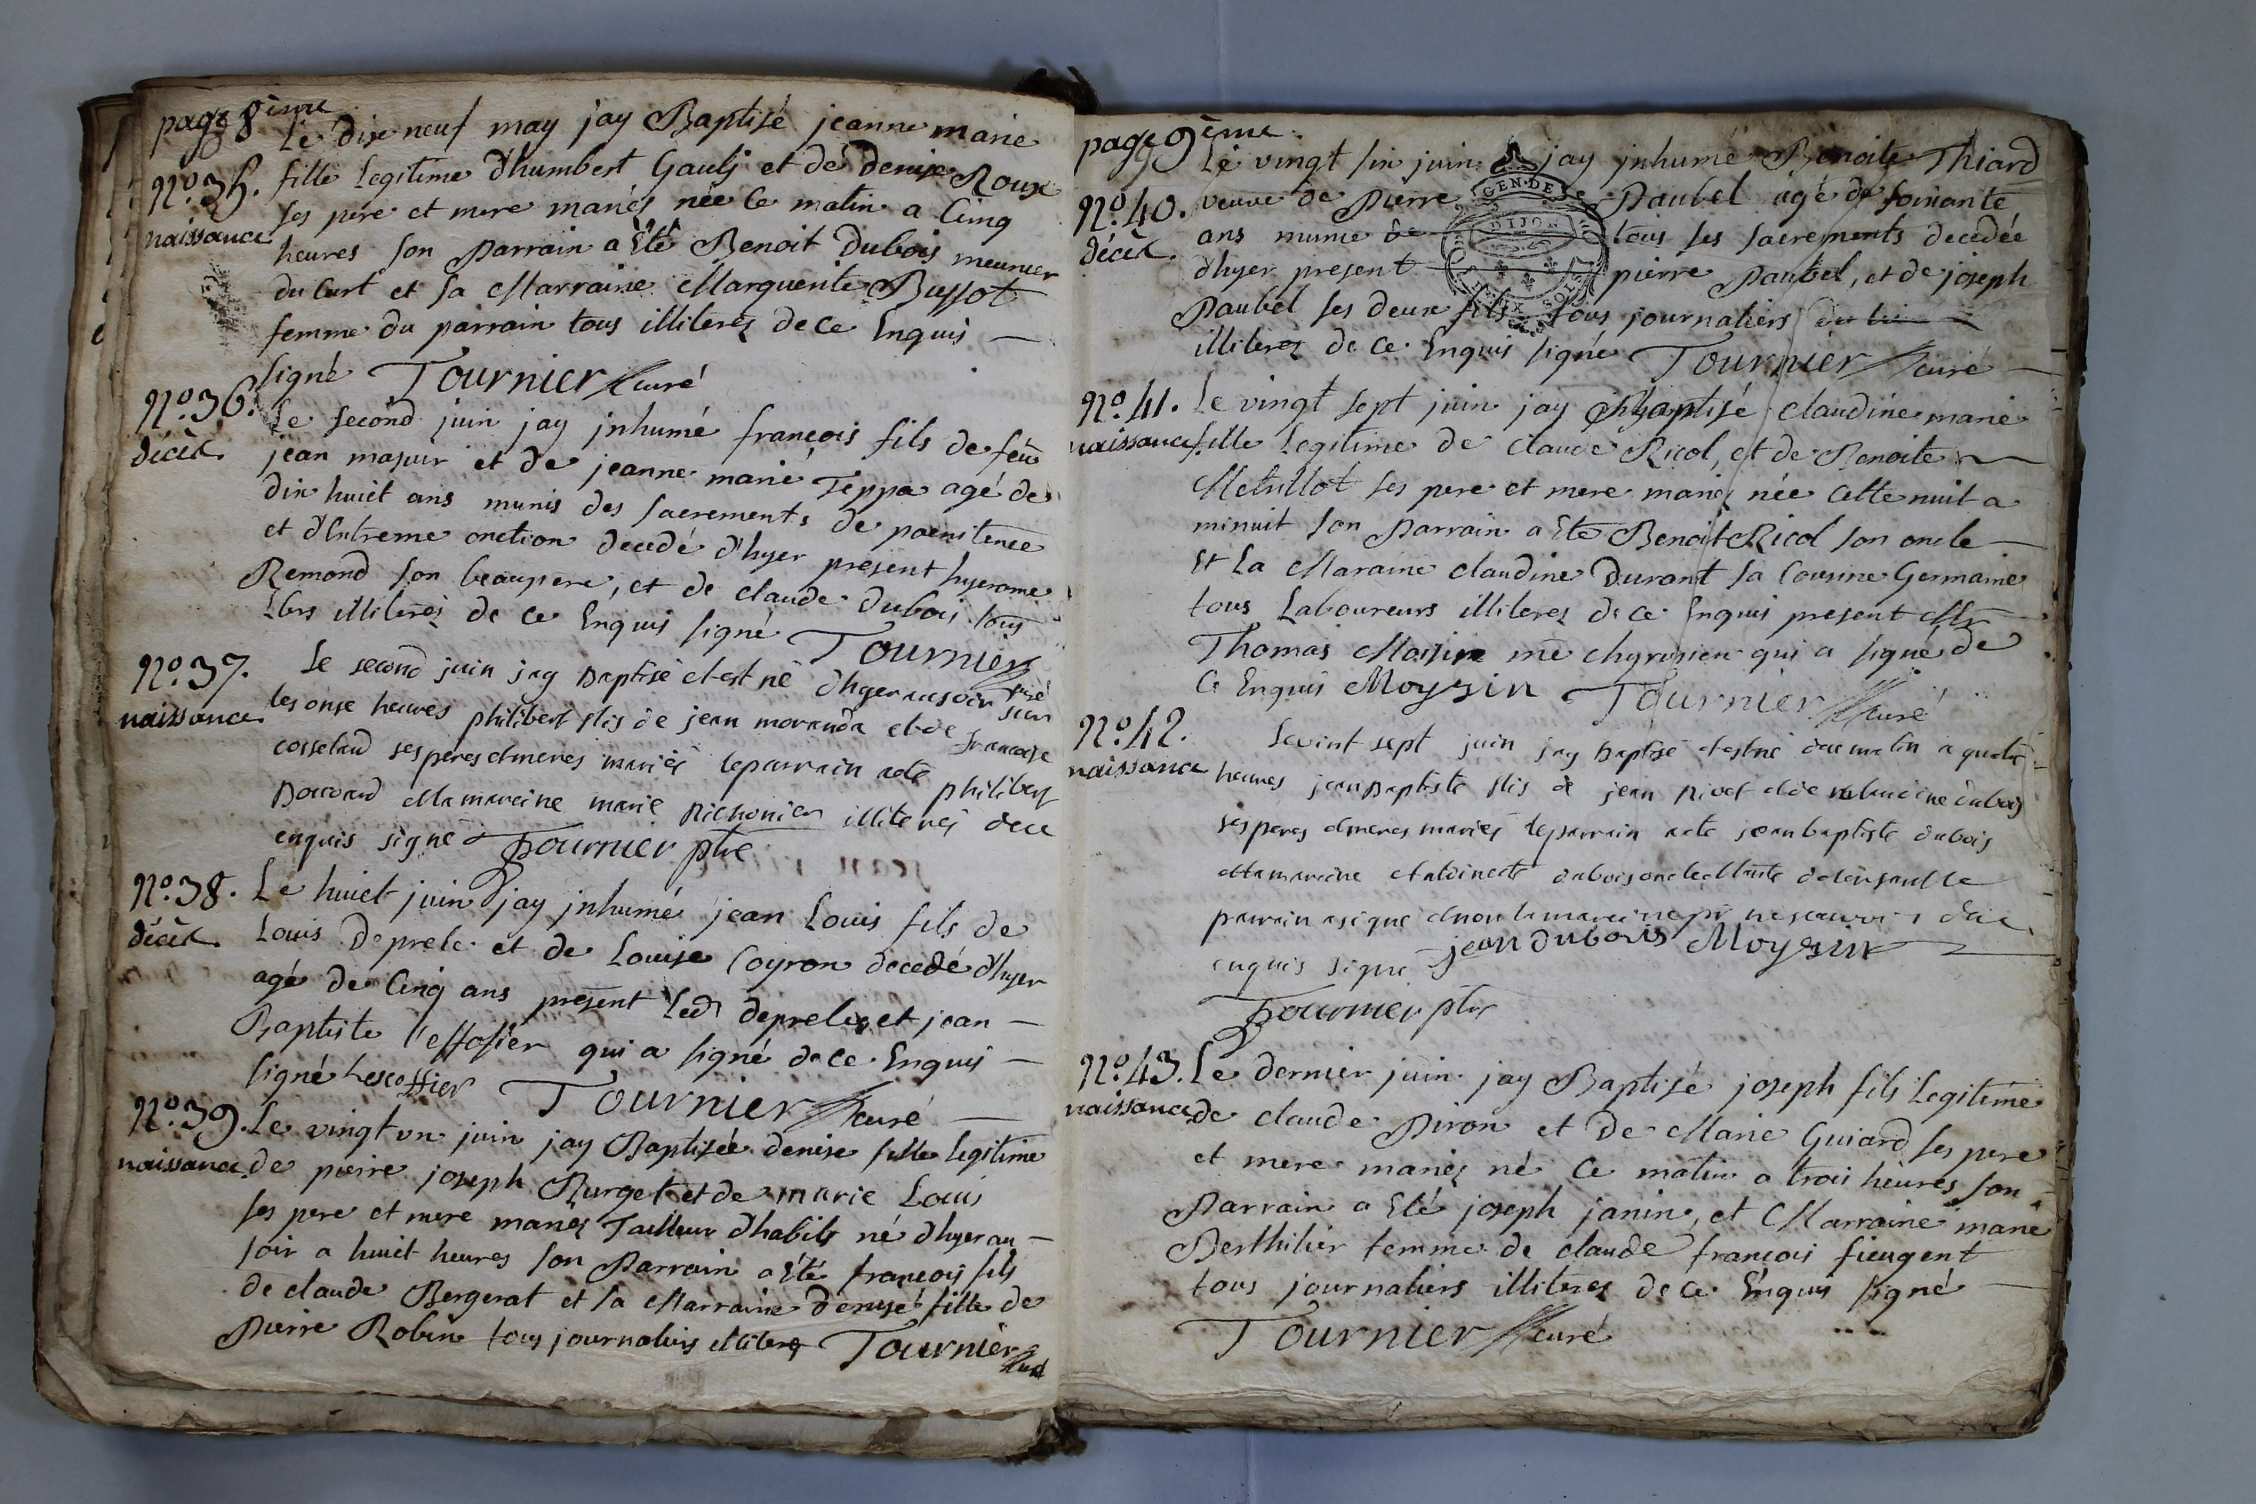 page 8ème
Le dix neuf may jay Baptisé jeanne marie
No. 35. fille Legitime d'humbert Gaulj et de denise Roux
naissance ses pere et mere mariés née ce matin a Cinq
heures son parrain a Eté Benoit Dubois meunier
du Curt et sa Marraine Marguerite Bussot
femme du parrain tous illiterez de ce Enquis —
signé Tournier curé
No. 36. Le second juin jay jnhumé françois fils de feu
décèd. jean et de jeanne marie Teppa agé de
dix huict ans munis des sacrements de poenitence
et d'Extreme onction decedé d'hyer present hyerome
Remond son beaupere, et de claude Dubois tous
Lbrs illiterés de ce Enquis signé Tournier curé
No. 37. Le second juin jay Baptisé et est né d'hyer au soir sur
naissance les onse heures philibert fils de jean moranda et de francoise
cosseland ses peres et meres mariés le parrain a eté philibert
et la mareine marie pichonier illiterés de ce
enquis signé Tournier ptre
No. 38. Le huict juin jay jnhumé jean Louis fils de
décèd. Louis Deprele et de Louise Coyron decedé d'hyer
agé de Cinq ans present led deprele et jean —
Baptiste qui a signé de ce Enquis —
signé Lescoffier Tournier curé —
No. 39. Le vingt un juin jay Baptisée denise fille legitime
naissance de pierre joseph Burget et de marie Louis
ses pere et mere mariez Tailleur d'habits né d'hyer au —
soir a huict heures son Parrain a Eté françois fils
de claude Bergerat et sa Marraine denise fille de
Pierre Robin tous journaliers illiterez Tournier curé
page 9ème
Le vingt six juin jay jnhumé Benoite Thiard
No. 40. veuve de Pierre Paubel agé de soixante
décèd. ans munie de tous ses sacrements decedée
d'hyer present pierre Paubel, et de joseph
Paubel ses deux fils tous journaliers
illiterez de ce Enquis signé Tournier curé —
GEN. DE DIJON
DEUX SOLS
No. 41. Le vingt sept juin jay Baptisé claudine marie
naissance fille Legitime de claude Ricol, et de Benoite
ses pere et mere mariez née cette nuit a
minuit son Parrain a Eté Benoit Ricol son oncle —
Et La Maraine claudine Durant sa Cousine Germaine
tous Laboureurs illiterez de ce Enquis present Mr —
Thomas Moisin me chyrurgien qui a signé de
Ce Enquis Moyzin Tournier curé
No. 42. Le vint sept juin jay Baptisé et est né du matin a quatre
naissance heures jean Baptiste fils de jean Rivet et de claudine dubois
ses peres et meres mariés le parrain a eté jean baptiste dubois
et la mareine dubois oncle et tante de l'enfant le
parrain a signé et non la mareine pr ne scavoir de ce
enquis signé jean dubois Moyzin
Tournier ptre
No. 43. Le dernier juin jay Baptisé joseph fils Legitime
naissance de claude Piron et de Marie Guiard ses pere
et mere mariez né Ce matin a trois heures son
Parrain a Eté joseph janin, et Marraine marie
Berthilier femme de claude françois fieugent
tous journaliers illiterez de ce Enquis signé —
Tournier curé